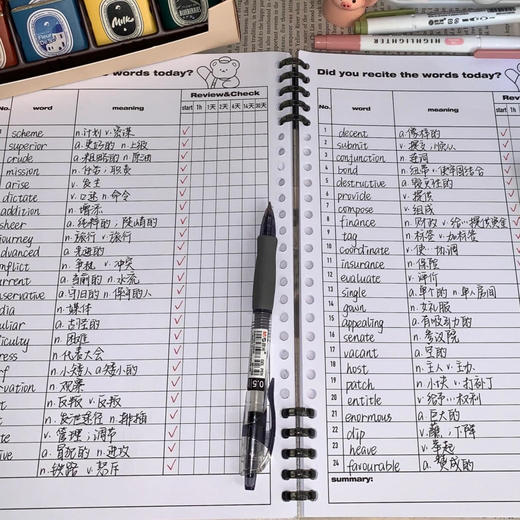 Milk
the words today?
Review&Check
No. word meaning start 1h 1天 2天 6天 14天 30天
scheme n.计划 v.密谋
superior a.更好的 n.上级
crude a.粗略的 n.原油
mission n.任务;职责
arise v.发生
dictate v.口述 n.命令
addition n.增添
sheer a.纯粹的;陡峭的
journey n.旅行 v.旅行
advanced a.先进的
nflict n.争执 v.冲突
urrent a.当前的 n.水流
nservative a.守旧的 n.保守的人
dia n.媒体
uliar a.古怪的
ficulty n.困难
ress n.代表大会
rf n.小矮人 a.矮小的
rvation n.观察
t n.反叛 v.反叛
t n.发泄途径 n.排插
te v.管理;调节
ive a.冒犯的 n.进攻
n.铁路 v.怒斥
0.5
HIGHLIGHTER
Did you recite the words today?
Review
No. word meaning start 1h
1 decent a.像样的
2 submit v.提交;顺从
3 conjunction n.连词
4 bond n.纽带 v.使牢固结合
5 destructive a.毁灭性的
6 provide v.提供
7 compose v.组成
8 finance n.财政 v.给…提供资金
9 tag n.标签 v.加标签
10 coordinate v.使…协调
11 insurance n.保险
12 evaluate v.评价
13 single a.单个的 n.单人房间
14 gown n.女礼服
15 appealing a.有吸引力的
16 senate n.参议院
17 vacant a.空的
18 host n.主人 v.主办
19 patch n.小块 v.打补丁
20 entitle v.给予…权利
21 enormous a.巨大的
22 dip v.蘸,下降
23 heave v.举起
24 favourable a.赞成的
summary: